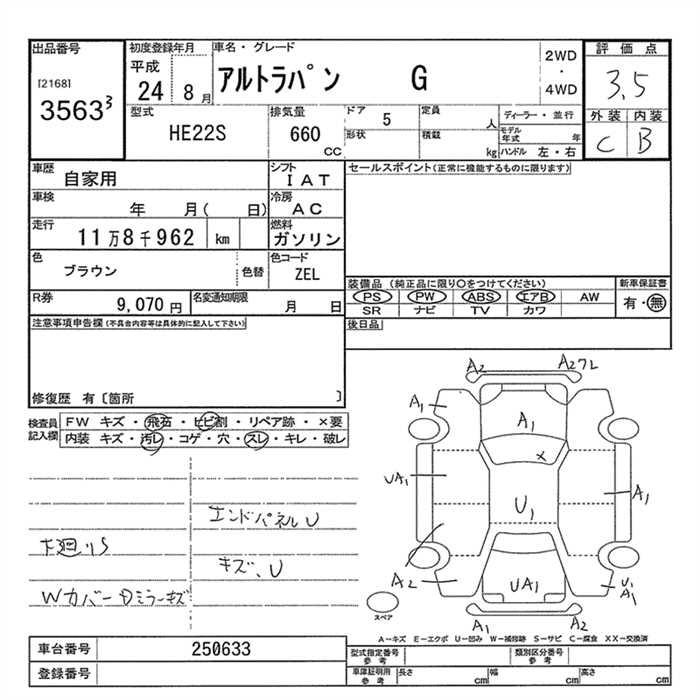 出品番号
[2168]
3563 3
初度登録年月
平成
24 8 月
車名・グレード
アルトラパン G
2WD
・
4WD
評価点
3.5
外装 内装
C B
型式
HE22S
排気量
660
cc
ドア 5
形状
定員
人
積載
kg
ディーラー・並行
モデル年式 年
ハンドル 左・右
車歴 自家用
シフト
IAT
セールスポイント(正常に機能するものに限ります)
車検
年 月( 日)
冷房
AC
走行
11万8千962 km
燃料
ガソリン
色
ブラウン
色替
色コード
ZEL
装備品(純正品に限り○をつけてください)
PS PW ABS エアB AW
SR ナビ TV カワ
新車保証書
有・無
R券
9,070 円
名変通知期限
月 日
後日品
注意事項申告欄(不具合内容等は具体的に記入して下さい)
修復歴 有〔箇所 〕
検査員
記入欄
FW キズ・飛石・ヒビ割・リペア跡・×要
内装 キズ・汚レ・コゲ・穴・スレ・キレ・破レ
エンドパネルU
下廻りS
キズ、U
Wカバー Dミラーキズ
A2
A2フレ
A1
A1
×
UA1
U1
A1
A2
UA1
U1
A1
A1
A2
スペア
A-キズ E-エクボ U-凹み W-補修跡 S-サビ C-腐食 XX-交換済
車台番号 250633
登録番号
型式指定番号
参考
類別区分番号
参考
車庫証明用
参考
長さ cm
幅 cm
高さ cm